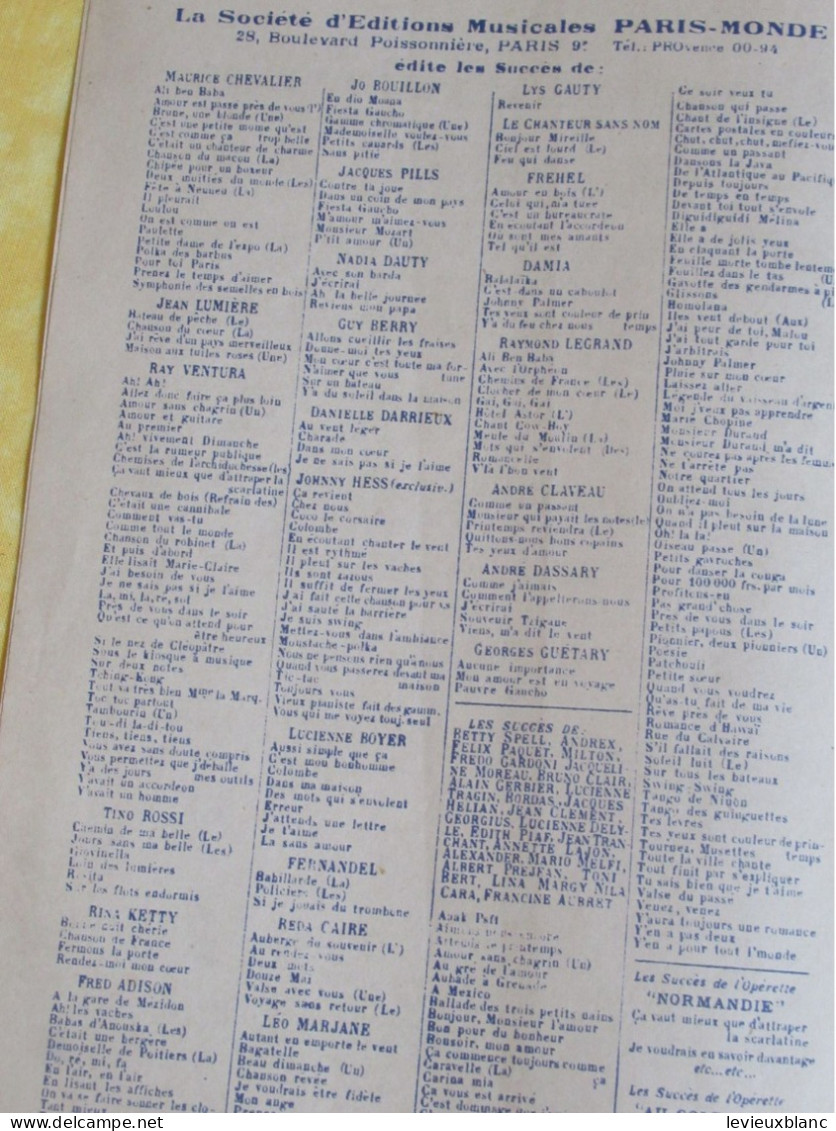 La Société d'Editions Musicales PARIS-MONDE
28, Boulevard Poissonnière, PARIS 9e Tél.: PROvence 00-94
édite les Succès de:
MAURICE CHEVALIER
Ali ben Baba
Amour est passé près de vous (l')
Brune, une blonde (Une)
C'est une petite mome qu'est
C'est comme ça trop belle
C'était un chanteur de charme
Chanson du maçon (La)
Chipée pour un boxeur
Deux moitiés du monde (Les)
Fête à Neuneu (La)
Il pleurait
Loulou
On est comme on est
Paulette
Petite dame de l'expo (La)
Polka des barbus
Pour toi Paris
Prenez le temps d'aimer
Symphonie des semelles en bois
JEAN LUMIÈRE
Bateau de pêche (Le)
Chanson du cœur (La)
J'ai rêvé d'un pays merveilleux
Maison aux tuiles roses (Une)
RAY VENTURA
Ah! Ah!
Allez donc faire ça plus loin
Amour sans chagrin (Un)
Amour et guitare
Au premier
Ah! vivement Dimanche
C'est la rumeur publique
Chemises de l'archiduchesse (les)
Ça vaut mieux que d'attraper la
scarlatine
Chevaux de bois (Refrain des)
C'était une cannibale
Comment vas-tu
Comme tout le monde
Chanson du robinet (La)
Et puis d'abord
Elle lisait Marie-Claire
J'ai besoin de vous
Je ne sais pas si je l'aime
La, mi, la, ré, sol
Près de vous dans le soir
Qu'est ce qu'on attend pour
être heureux
Si le nez de Cléopâtre
Sous le kiosque à musique
Sur deux notes
Tching-Kong
Tout va très bien Mme la Marq.
Toc toc partout
Tambourin (Un)
Tou-di la-di-tou
Tiens, tiens, tiens
Vous avez sans doute compris
Vous permettez que j'déballe
Y'a des jours mes outils
Y'avait un accordéon
Y'avait un homme
TINO ROSSI
Chemin de ma belle (Le)
Jours sans ma belle (Les)
Giovinella
Loin des lumières
Rosita
Sur les flots endormis
RINA KETTY
Chanson de France
Fermons la porte
Rendez-moi mon cœur
FRED ADISON
A la gare de Mezidon
Ah! les vaches
Babas d'Anouska (Les)
C'était une bergère
Demoiselle de Poitiers (La)
Do, ré, mi, fa
En l'air, en l'air
En lisant les affiches
On va se faire sonner les clo-
Tant mieux
JO BOUILLON
En dio Moana
Fiesta Gaucho
Gamme chromatique (Une)
Mademoiselle voulez-vous
Petits canards (Les)
Sans pitié
JACQUES PILLS
Contre la joue
Dans un coin de mon pays
Fiesta Gaucho
M'amour m'aimez-vous
Monsieur Mozart
P'tit amour (Un)
NADIA DAUTY
Avec son barda
J'écrirai
Ah la belle journée
Reviens mon papa
GUY BERRY
Allons cueillir les fraises
Donne-moi tes yeux
Mon cœur c'est toute ma for-
N'aimer que vous tune
Sur un bateau
Y'a du soleil dans la maison
DANIELLE DARRIEUX
Au vent léger
Charade
Dans mon cœur
Je ne sais pas si je l'aime
JOHNNY HESS (exclusiv.)
Ça revient
Chez nous
Coco le corsaire
Colombe
En écoutant chanter le vent
Il est rythmé
Il pleut sur les vaches
Ils sont zazous
Il suffit de fermer les yeux
J'ai fait cette chanson pour vs
J'ai sauté la barrière
Je suis swing
Mettez-vous dans l'ambiance
Moustache-polka
Nous ne pensons rien qu'à nous
Quand vous passerez devant ma
Tic-tac maison
Toujours vous
Vieux pianiste fait des gamm.
Vous qui me voyez touj. seul
LUCIENNE BOYER
Aussi simple que ça
C'est mon bonhomme
Colombe
Dans ma maison
Des mots qui s'envolent
Erreur
J'attends une lettre
Je t'aime
La sans amour
FERNANDEL
Babillarde (La)
Policiers (Les)
Si je jouais du trombone
REDA CAIRE
Auberge du souvenir (L')
Au rendez-vous
Deux mots
Douze Mai
Valse avec vous (Une)
Voyage sans retour (Le)
LÉO MARJANE
Autant en emporte le vent
Bagatelle
Beau dimanche (Un)
Chanson rêvée
Je voudrais être fidèle
Mon ange
LYS GAUTY
Revenir
LE CHANTEUR SANS NOM
Bonjour Mireille
Ciel est lourd (Le)
Feu qui danse
FREHEL
Amour en bois (L')
Celui qui m'a tuée
C'est un bureaucrate
En écoutant l'accordéon
Où sont mes amants
Tel qu'il est
DAMIA
Balalaïka
C'est dans un caboulot
Johnny Palmer
Tes yeux sont couleur de prin
Y'a du feu chez nous temps
RAYMOND LEGRAND
Ali Ben Baba
Avec l'Orphéon
Chemins de France (Les)
Clocher de mon cœur (Le)
Gai, Gai, Gai
Hôtel Astor (L')
Chant Cow-Boy
Meule du Moulin (La)
Mots qui s'envolent (Des)
Romancelle
V'la l'bon vent
ANDRÉ CLAVEAU
Comme un passant
Monsieur qui payait les notes (le)
Printemps reviendra (Le)
Quittons-nous bons copains
Tes yeux d'amour
ANDRÉ DASSARY
Comme j'aimais
Comment l'appellerons-nous
J'écrirai
Souvenir Tzigane
Viens, m'a dit le vent
GEORGES GUÉTARY
Aucune importance
Mon amour est en voyage
Pauvre Gaucho
LES SUCCÈS DE:
BETTY SPELL, ANDREX,
FELIX PAQUET, MILTON,
FREDO GARDONI JACQUELI
NE MOREAU, BRUNO CLAIR,
ALAIN GERBIER, LUCIENNE
TRAGIN, BORDAS, JACQUES
HELIAN, JEAN CLEMENT,
GEORGIUS, LUCIENNE DELY-
LE, EDITH PIAF, JEAN TRAN-
CHANT, ANNETTE LAJON,
ALEXANDER, MARIO MELFI,
ALBERT PREJEAN, TONI
BERT, LINA MARGY NILA
CARA, FRANCINE AUBRET
Amour sans chagrin (Un)
Au gré de l'amour
Aubade à Grenade
A Mexico
Ballade des trois petits nains
Bonjour, Monsieur l'amour
Bon pour du bonheur
Bonsoir, mon amour
Ça commence toujours comme
Caravelle (La) ça
Carina mia
Ça vous est arrivé
C'est dommage
Ce soir veux tu
Chanson qui passe
Chant de l'insigne (Le)
Cartes postales en couleur
Chut, chut, chut, méfiez-vou
Comme un passant
Dansons la Java
De l'Atlantique au Pacifiq
Depuis toujours
De temps en temps
Devant toi tout s'envole
Diguidiguidi Mélina
Elle a
Elle a de jolis yeux
En claquant la porte
Feuille morte tombe lenteme
Fouillez dans le tas (U
Gavotte des gendarmes à pi
Glissons
Honolana
Iles vent debout (Aux)
J'ai peur de toi, Malou
J'ai tout gardé pour toi
J'arbitrais
Johnny Palmer
Pluie sur mon cœur
Laissez aller
Légende du vaisseau d'argent
Moi j'veux pas apprendre
Marie Chopine
Monsieur Durand
Monsieur Durand m'a dit
Ne courez pas après les femm
Ne t'arrête pas
Notre quartier
On attend tous les jours
Oubliez-moi
On n'a pas besoin de la lune
Quand il pleut sur la maison
Oh! la la!
Oiseau passe (Un)
Petits gavroches
Pour danser la conga
Pour 100 000 frs. par mois
Profitons-en
Pas grand'chose
Près de vous dans le soir
Petits papons (Les)
Pionnier, deux pionniers (Un)
Poésie
Patchouli
Petite sœur
Quand vous voudrez
Qu'as-tu fait de ma vie
Rêve près de vous
Romance d'Hawaï
Rue du Calvaire
S'il fallait des raisons
Soleil luit (Le)
Sur tous les bateaux
Swing-Swing
Tango de Ninon
Tango des guinguettes
Tes lèvres
Tes yeux sont couleur de prin-
Tournez, Musettes temps
Toute la ville chante
Tout finit par s'expliquer
Tu sais bien que je t'aime
Valse du passé
Venez, venez
Y'aura toujours une romance
Y'en a pas deux
Y'en a pour tout l'monde
Les Succès de l'Opérette
"NORMANDIE"
Ça vaut mieux que d'attraper
la scarlatine
Je voudrais en savoir davantage
etc... etc...
Les Succès de l'Opérette
www.delcampe.net
levieuxblanc